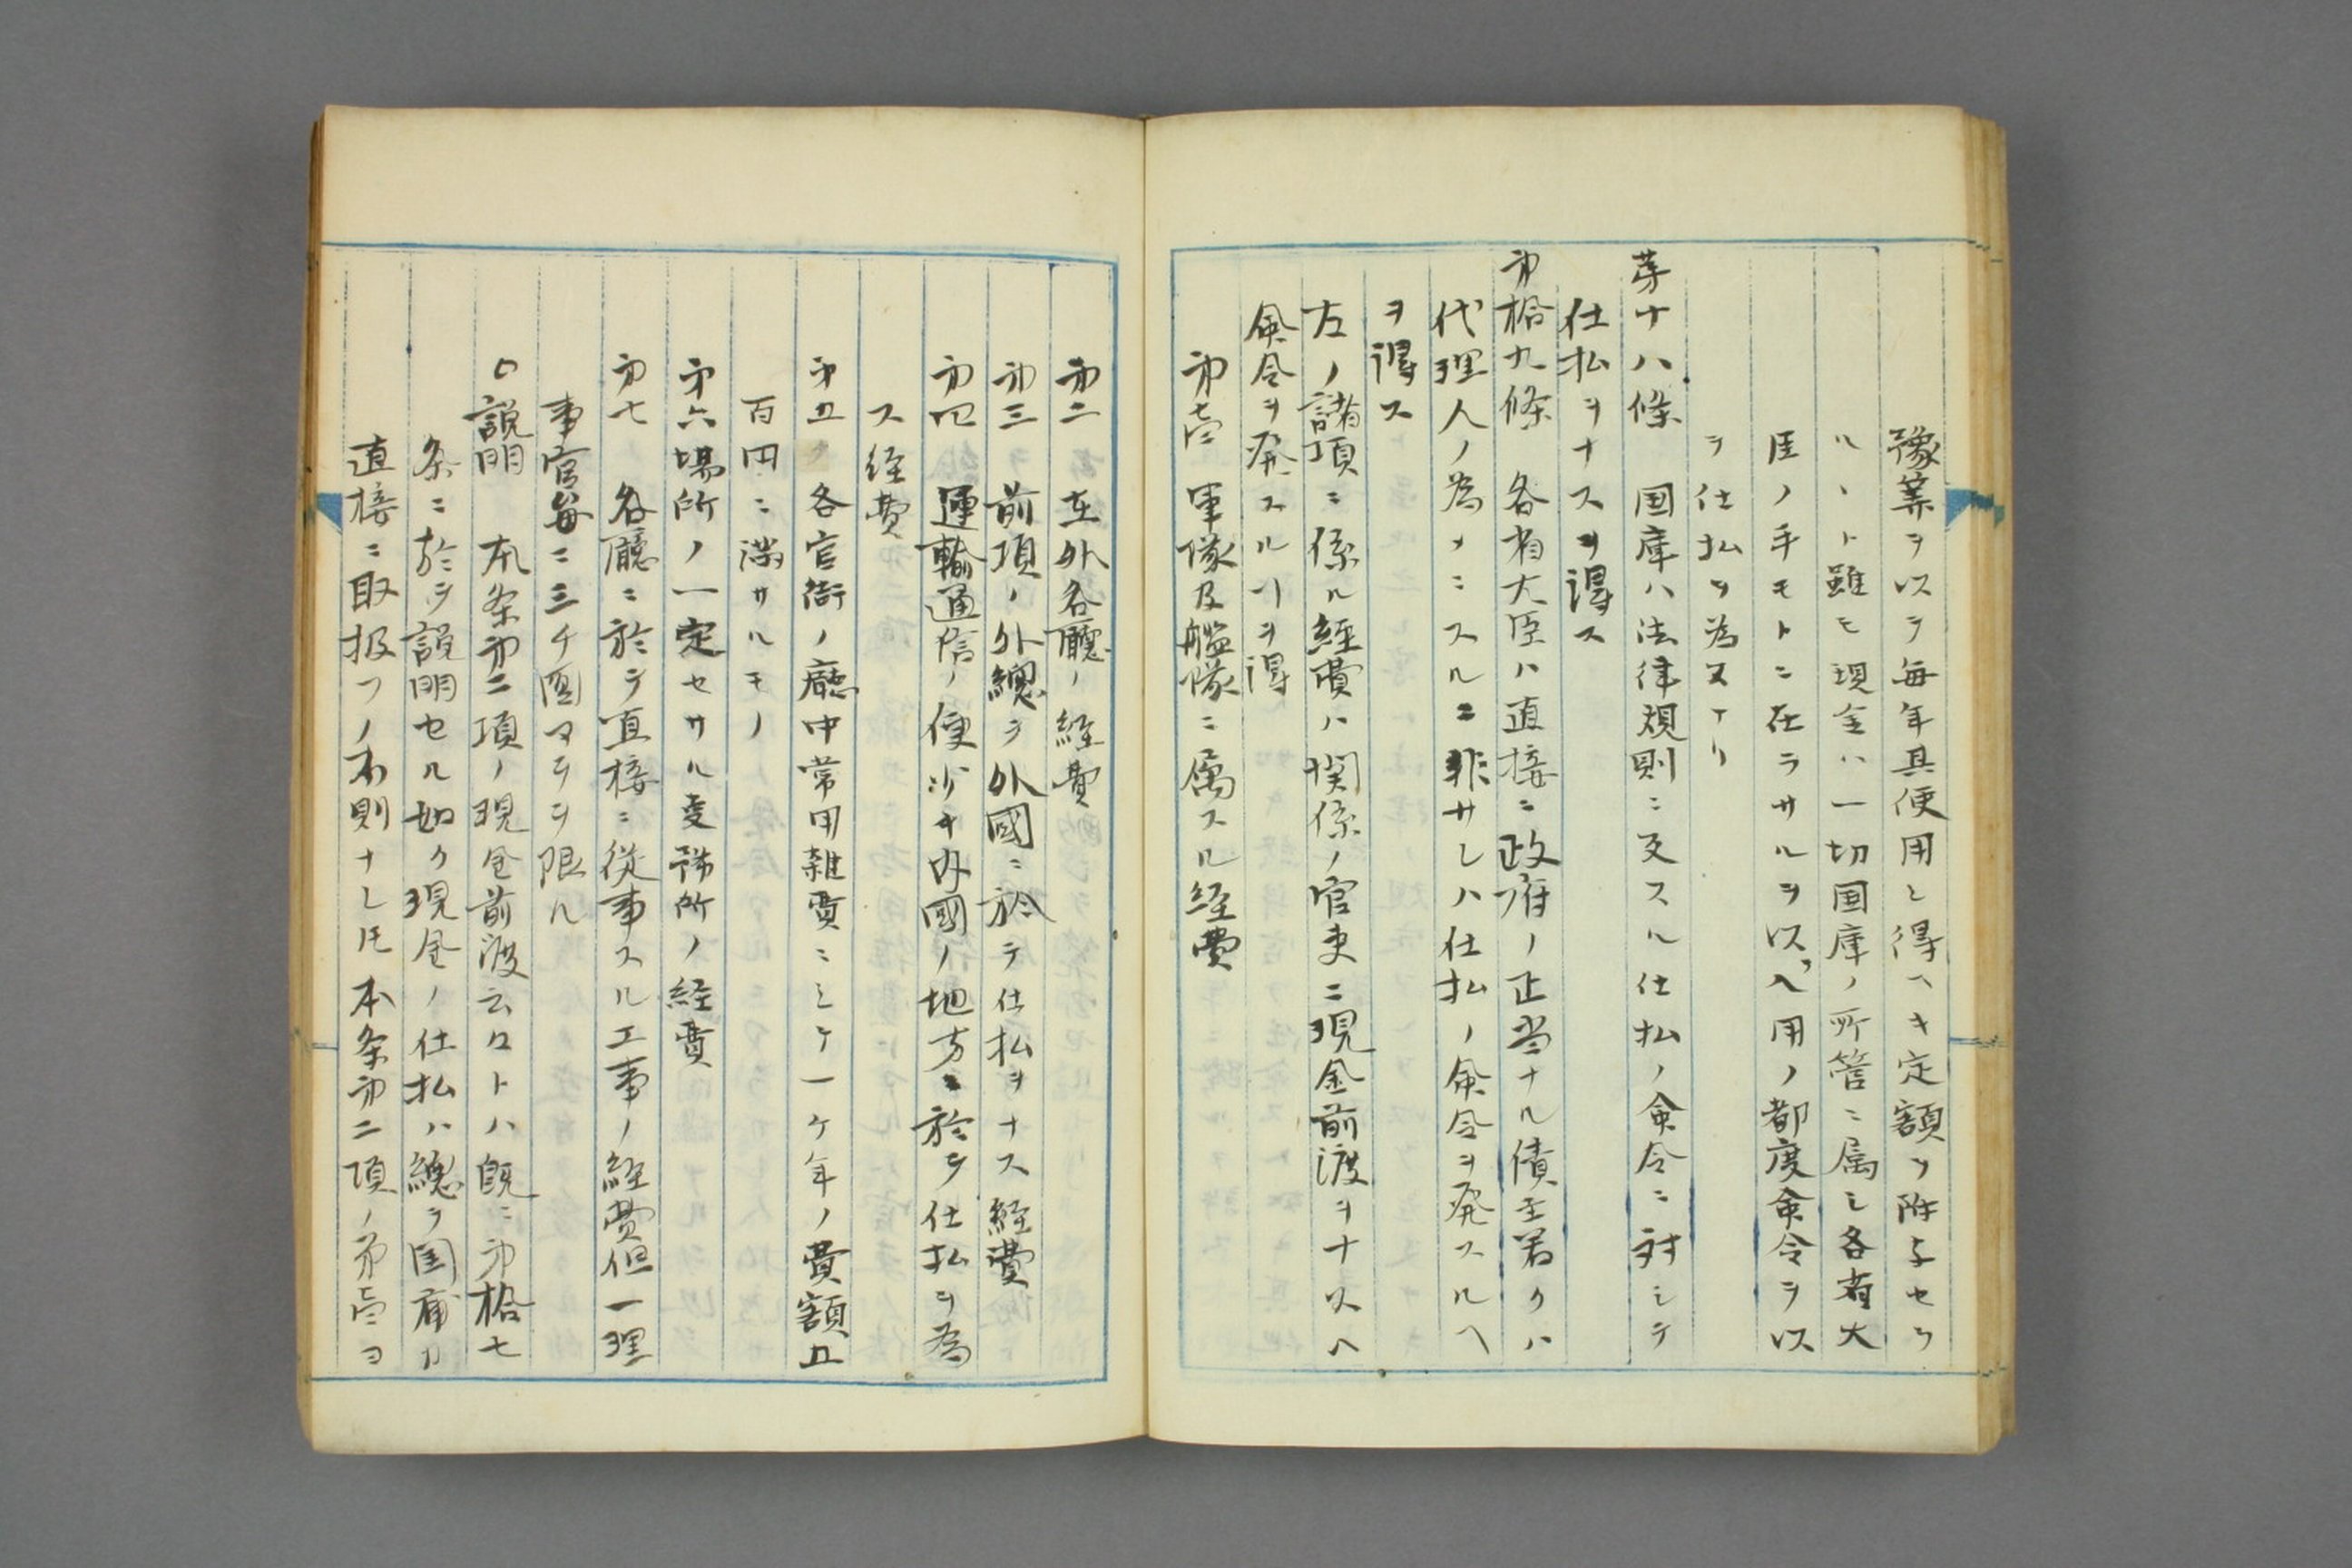 豫算ヲ以テ毎年其使用シ得ヘキ定額ヲ附与セラ
ルヽト雖モ現金ハ一切国庫ノ所管ニ属シ各省大
臣ノ手モトニ在ラサルヲ以ヘ用ノ都度命令ヲ以
テ仕払ヲ為スナリ
第十八條 国庫ハ法律規則ニ反スル仕払ノ命令ニ対シテ
仕払ヲナスヲ得ス
第拾九條 各省大臣ハ直接ニ政府ノ正当ナル債主若クハ
代理人ノ為メニスルニ非サレハ仕払ノ命令ヲ発スルヘ
ヲ得ス
左ノ諸項ニ係ル経費ハ関係ノ官吏ニ現金前渡ヲナスヘ
命令ヲ発スルヿヲ得
第壱 軍隊及艦隊ニ属スル経費
第二 在外各廳ノ経費
第三 前項ノ外總テ外國ニ於テ仕払ヲナス経費
第四 運輸通信ノ便少キ内國ノ地方ニ於テ仕払ヲ為
ス経費
第五 各官衙ノ廳中常用雑費ニシテ一ケ年ノ費額五
百円ニ満サルモノ
第六場所ノ一定セサル事務所ノ経費
第七 各廳ニ於テ直接ニ従事スル工事ノ経費但一理
事官毎ニ三千圓マテヲ限ル
○説明 本条第二項ノ現金前渡云々トハ既ニ第拾七
条ニ於テ説明セル如ク現金ノ仕払ハ總テ国庫カ
直接ニ取扱フノ本則ナレ𪜈本条第二項ノ第壱ヨ